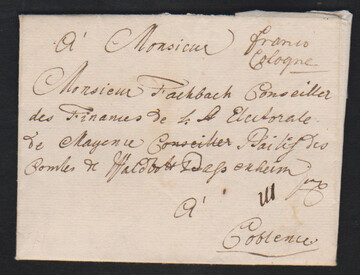 A' Monsieur
franco
Cologne
Monsieur Fachbach Conseiller
des Finances de S: A Electorale
de Mayence Conseiller Bailif des
Comtes de Waldbott Bassenheim
A'
Coblence